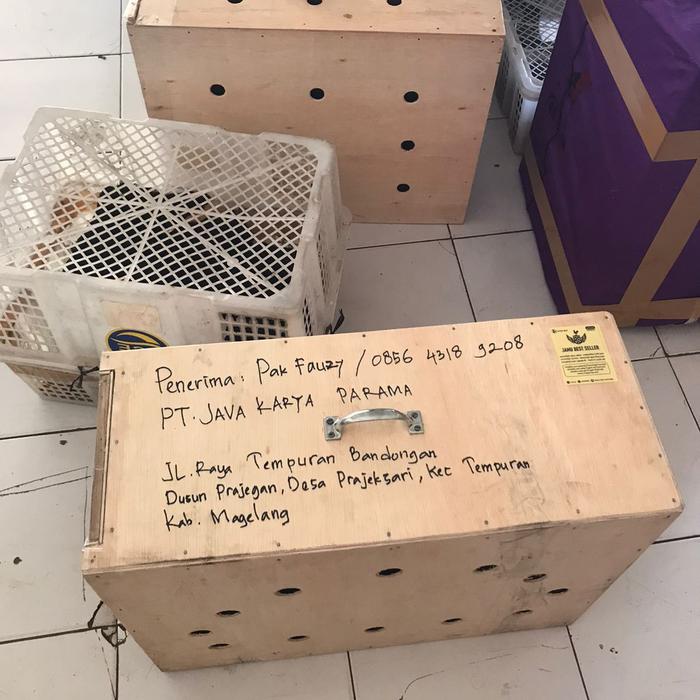 Penerima: Pak Fauzy / 0856 4318 9208
PT. JAVA KARYA PARAMA
JL. Raya Tempuran Bandongan
Dusun Prajegan, Desa Prajeksari, Kec Tempuran
Kab. Magelang
JAMU BEST SELLER